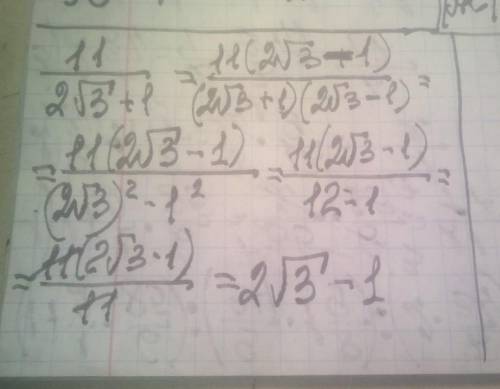 11/(2√3+1) = 11(2√3-1)/((2√3+1)(2√3-1)) =
= 11(2√3-1)/((2√3)²-1²) = 11(2√3-1)/(12-1) =
= 11(2√3-1)/11 = 2√3-1